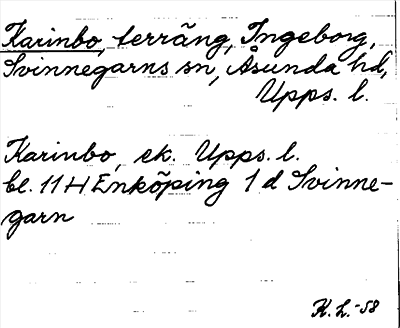 Karinbo, terräng, Ingeborg,
Svinnegarns sn, Åsunda hd,
Upps. l.
Karinbo, ek. Upps. l.
bl. 11 H Enköping 1 d Svinne-
garn
K. L. -58